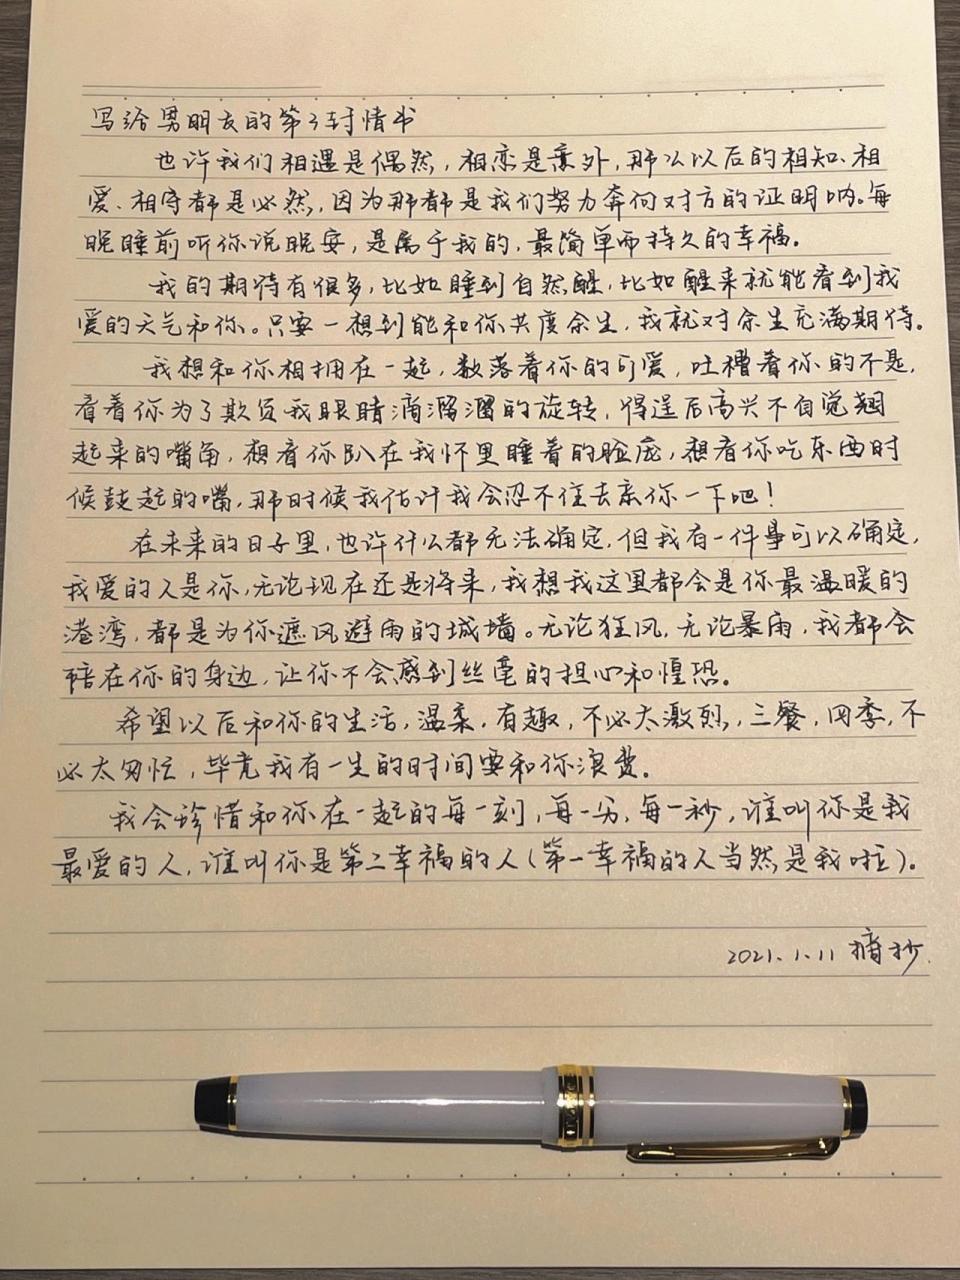 写给男朋友的第3封情书
也许我们相遇是偶然，相恋是意外，那么以后的相知、相
爱、相守都是必然，因为那都是我们努力奔向对方的证明呐。每
晚睡前听你说晚安，是属于我的，最简单而持久的幸福。
我的期待有很多，比如睡到自然醒，比如醒来就能看到我
爱的天气和你。只要一想到能和你共度余生，我就对余生充满期待。
我想和你相拥在一起，数落着你的可爱，吐槽着你的不是，
看着你为了欺负我眼睛滴溜溜的旋转，得逞后高兴不自觉翘
起来的嘴角，想看你趴在我怀里睡着的脸庞，想看你吃东西时
候鼓起的嘴，那时候我估计我会忍不住去亲你一下吧！
在未来的日子里，也许什么都无法确定，但我有一件事可以确定，
我爱的人是你，无论现在还是将来，我想我这里都会是你最温暖的
港湾，都是为你遮风避雨的城墙。无论狂风，无论暴雨，我都会
陪在你的身边，让你不会感到丝毫的担心和惶恐。
希望以后和你的生活，温柔，有趣，不必太激烈，三餐，四季，不
必太匆忙，毕竟我有一生的时间要和你浪费。
我会珍惜和你在一起的每一刻，每一分，每一秒，谁叫你是我
最爱的人，谁叫你是第二幸福的人（第一幸福的人当然是我啦）。
2021.1.11 摘抄